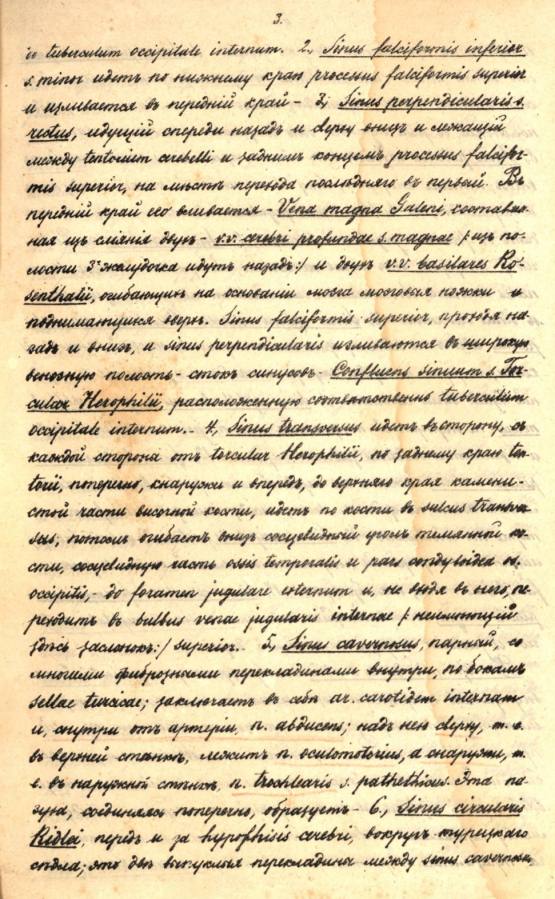 3.
is tuberculum occipitale internum. 2., Sinus falciformis inferior
s. minor идетъ по нижнему краю processus falciformis superior
и изливается въ передній край – 3., Sinus perpendicularis s.
rectus, идущій спереди назадъ и сверху внизъ и лежащій
между tentorium cerebelli и заднимъ концемъ processus falcifor-
mis superior, на мѣстѣ перехода послѣдняго въ первый. Въ
передній край его вливается – Vena magna Galeni, составлен-
ная изъ сліянія двухъ – v.v. cerebri profundae s. magnae /: изъ по-
лости 3го желудочка идутъ назадъ :/ и двухъ v.v. basilares Ro-
senthalii, огибающихъ на основаніи мозга мозговыя ножки и
поднимающихся вверхъ. Sinus falciformis superior, проходя на-
задъ и внизъ, и sinus perpendicularis изливаются въ широкую
венозную полость – стокъ синусовъ – Confluens sinuum s. Tor-
cular Herophilii, расположенную соотвѣтственно tuberculum
occipitale internum. – 4., Sinus transversus идетъ въ сторону, съ
каждой стороны отъ torcular Herophilii, по заднему краю ten-
torii, поперечно, кнаружи и впередъ, до верхняго края камени-
стой части височной кости, идетъ по кости въ sulcus transver-
sus; потомъ огибаетъ внизъ сосцевидный уголъ темянной ко-
сти, сосцевидную часть ossis temporalis и pars condyloidea os.
occipitis, – до foramen jugulare externum и, не входя въ него, пе-
реходитъ въ bulbus venae jugularis internae /: неимѣющій
здѣсь заслонокъ :/ superior. 5., Sinus cavernosus, парный, со
многими фиброзными перекладинами внутри, по бокамъ
sellae turcicae; заключаетъ въ себѣ ar. carotidem internam
и, снутри отъ артеріи, n. abducens; надъ нею сверху, т. е.
въ верхней стѣнкѣ, лежитъ n. oculomotorius, а снаружи, т.
е. въ наружной стѣнкѣ, n. trochlearis s. pathethicus. Эта па-
зуха, соединяясь поперечно, образуетъ – 6., Sinus circularis
Ridlei, передъ и за hypophisis cerebri, вокругъ турецкаго
сѣдла; это двѣ выпуклыя перекладины между sinus cavernosus,